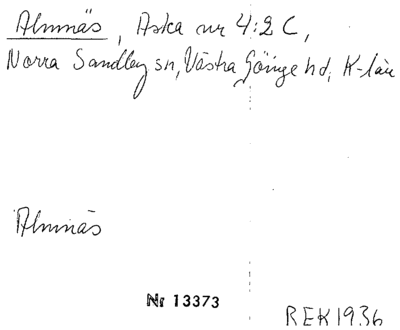 Almnäs, Aska nr 4:2 C,
Norra Sandby sn, Västra Göinge hd, K-län
Almnäs
Nr 13373
REK 1936